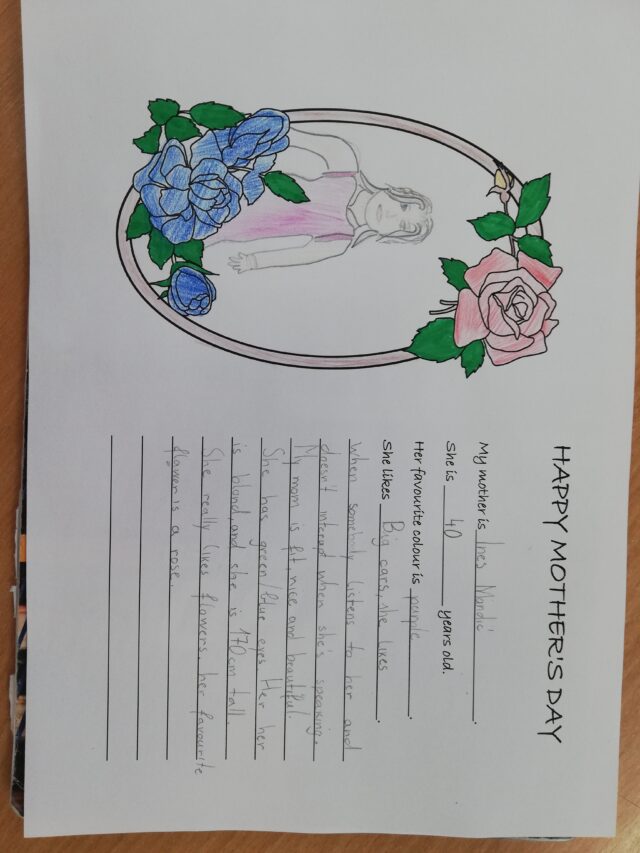 HAPPY MOTHER'S DAY
My mother is Ines Mandić.
She is 40 years old.
Her favourite colour is purple.
She likes Big cars, she likes
When somebody listens to her and
doesn't interept when she's speaking.
My mom is fit, nice and beautiful.
She has green/blue eyes Her her
is blond and she is 170cm tall
She really likes flowers, her favourite
flower is a rose.